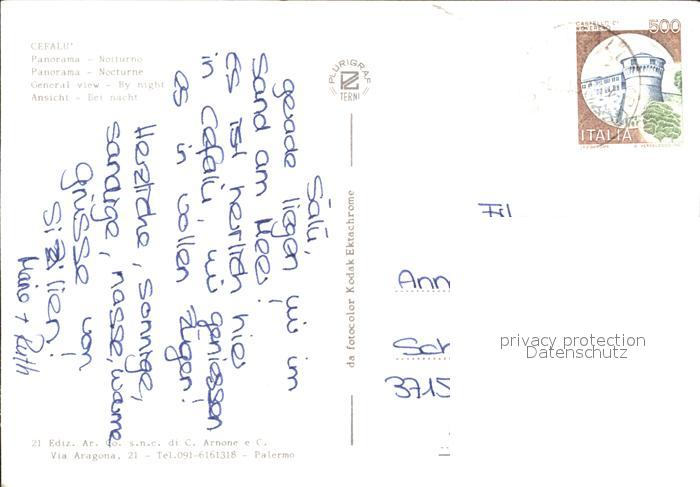 CEFALU'
Panorama - Notturno
Panorama - Nocturne
General view - By night
Ansicht - Bei nacht
PLURIGRAF
TERNI
CASTELLO DI
ROVERETO
500
ITALIA
Salü,
gerade liegen wir im
Sand am Meer!
Es ist herrlich hier
in Cefalu, wir geniessen
es in vollen Zügen!
Herzliche, sonnige,
sandige, nasse, warme
Grüsse von
Sizilien!
+ Ruth
da fotocolor Kodak Ektachrome
Frl
Ann
Sch
3715
privacy protection
Datenschutz
21 Ediz. Ar. Co. s.n.c. di C. Arnone e C.
Via Aragona, 21 - Tel.091-6161318 - Palermo